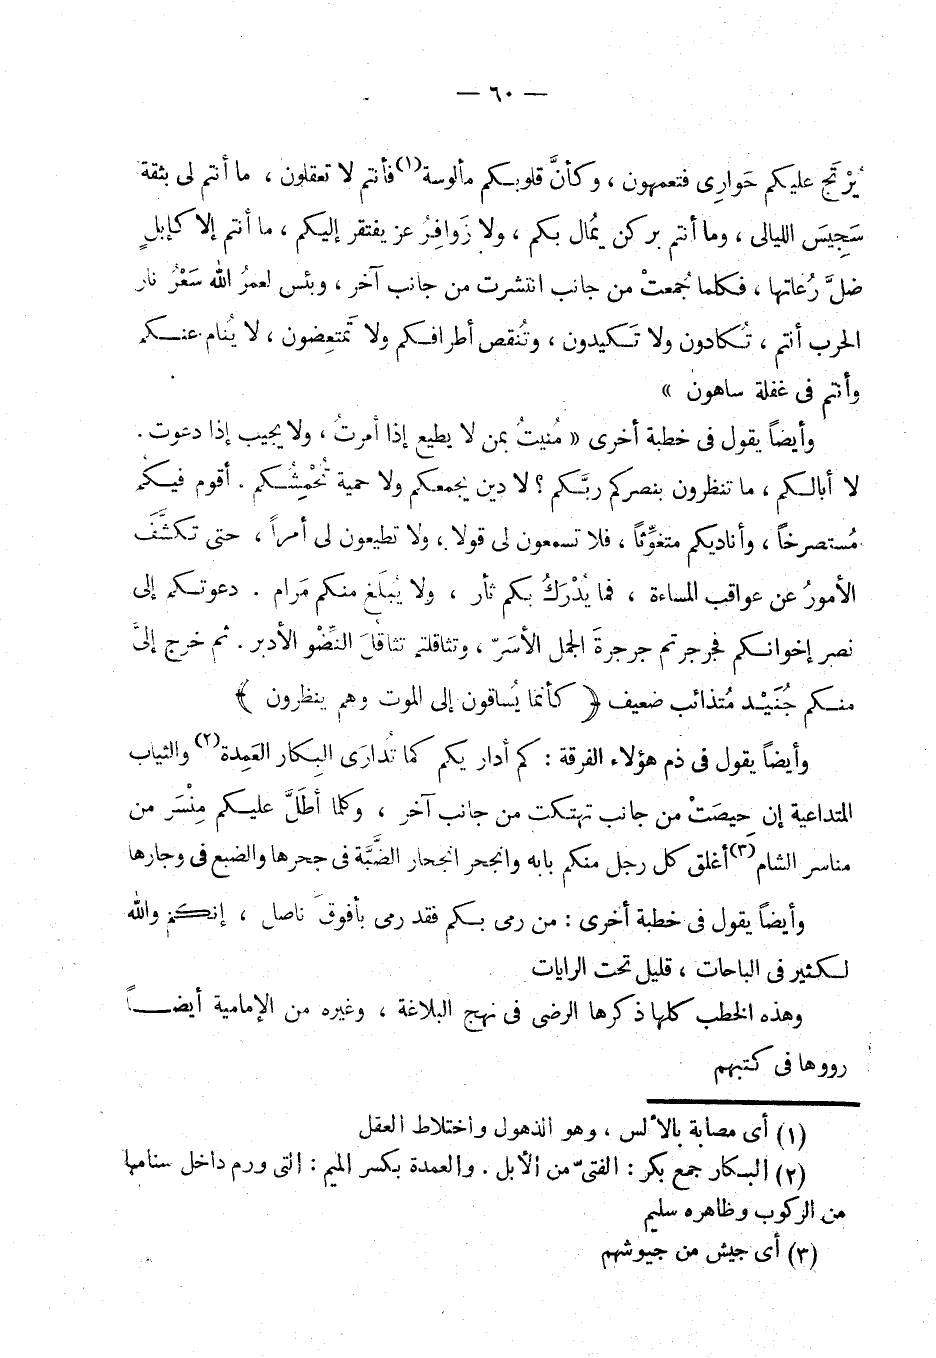 — ٦٠ —
يُرْتَج عليكم حَوارى فتعمهون ، وكأنَّ قلوبكم مألوسة(١) فأنتم لا تعقلون ، ما أنتم لى بثقة
سَجِيسَ الليالى ، وما أنتم بركن يُمال بكم ، ولا زَوافِرُ عز يفتقر إليكم ، ما أنتم إلا كإبلٍ
ضلَّ رُعاتها ، فكلما جُمعتْ من جانب انتشرت من جانب آخر ، وبئس لعمرُ الله سَعْرُ نار
الحرب أنتم ، تُكادون ولا تَكيدون ، وتُنقص أطرافكم ولا تمتعِضون ، لا يُنام عنكم
وأنتم فى غفلة ساهون »
وأيضاً يقول فى خطبة أخرى « مُنيتُ بمن لا يطيع إذا أمرتُ ، ولا يجيب إذا دعوت .
لا أبالكم ، ما تنظرون بنصركم ربَّكم ؟ لا دين يجمعكم ولا حمية تُحْمِشُكم . أقوم فيكم
مُستصرخاً ، وأناديكم متغوِّثاً ، فلا تسمعون لى قولا ، ولا تطيعون لى أمراً ، حتى تكشَّفَ
الأمورُ عن عواقب المساءة ، فما يُدْرَكُ بكم ثأر ، ولا يُبلَغ منكم مَرام . دعوتكم إلى
نصر إخوانكم فجرجرتم جرجرةَ الجمل الأسَرّ ، وتثاقلتم تثاقلَ النِّضْو الأدبر . ثم خرج إلىَّ
منكم جُنَيْد مُتذائب ضعيف ﴿ كأنما يُساقون إلى الموت وهم ينظرون ﴾
وأيضاً يقول فى ذم هؤلاء الفرقة : كم أداريكم كما تُدارَى البِكار العَمِدة(٢) والثياب
المتداعية إن حِيصَتْ من جانب تهتكت من جانب آخر ، وكلما أطَلَّ عليكم مِنْسَر من
مناسر الشام(٣) أغلق كل رجل منكم بابه وانجحر انجحار الضَّبَّة فى جحرها والضبع فى وجارها
وأيضاً يقول فى خطبة أخرى : من رمى بكم فقد رمى بأفوقَ ناصل ، إنكم والله
لكثير فى الباحات ، قليل تحت الرايات
وهذه الخطب كلها ذكرها الرضى فى نهج البلاغة ، وغيره من الإمامية أيضــاً
رووها فى كتبهم
(١) أى مصابة بالألس ، وهو الذهول واختلاط العقل
(٢) البكار جمع بكر : الفتىّ من الأبل . والعمدة بكسر الميم : التى ورم داخل سنامها
من الركوب وظاهره سليم
(٣) أى جيش من جيوشهم